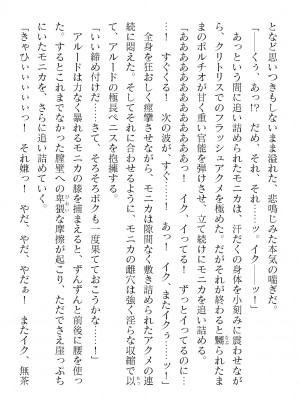 となど思いつきもしないまま溢れた、悲鳴じみた本気の喘ぎだ。
「――くぅ、あっ!? だめ、それ、それ……ッ。イクー……ッ!」
あっという間に追い詰められたモニカは、汗だくの身体を小刻みに震わせなが
ら、クリトリスでのフラッシュアクメを極めた。だがそれが終わると嬲られたま
まのポルチオが甘く重い官能を弾けさせ、立て続けにモニカを追い詰める。
「あああああああっ! イク、イってる! ずっとイってるのに……
っ! すぐくる! 次の波が、すぐ……! あっ! イク、またイクぅ……ッ!」
全身を狂おしく痙攣させながら、モニカは隙間なく敷き詰められたアクメの連
続に悶えた。そしてそれに合わせるように、モニカの雌穴は強く淫らな収縮で以
て、アルードの極長ペニスを抱擁する。
「いい締め付けだ……さて、そろそろボクも一度果てておこうかな……!」
アルードは力なく暴れるモニカの膝を捕まえると、ずんずんと前後に腰を使っ
た。するとこれまでなかった膣壁への卑猥な摩擦が起こり、ただでさえ崖っぷち
にいたモニカを、さらに追い詰めていく。
「きゃひぃぃぃぃっ! それ嫌っ! やだ、やだ、やだぁ! またイク、無茶